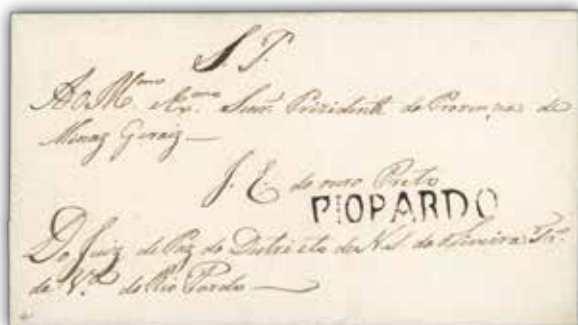 S. P.
Ao Ill.mo Ex.mo Senr. Prizidente da Provinçia de
Minaz Geraiz —
I. E. do ouro Preto
RIOPARDO
Do Juiz de Paz do Distrieto de N. S. da Oliveira Tr.o
da V.a do Rio Pardo —